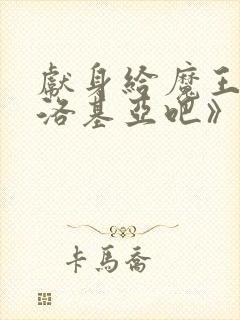 獻身給魔王
洛基亞吧》
卡馬喬